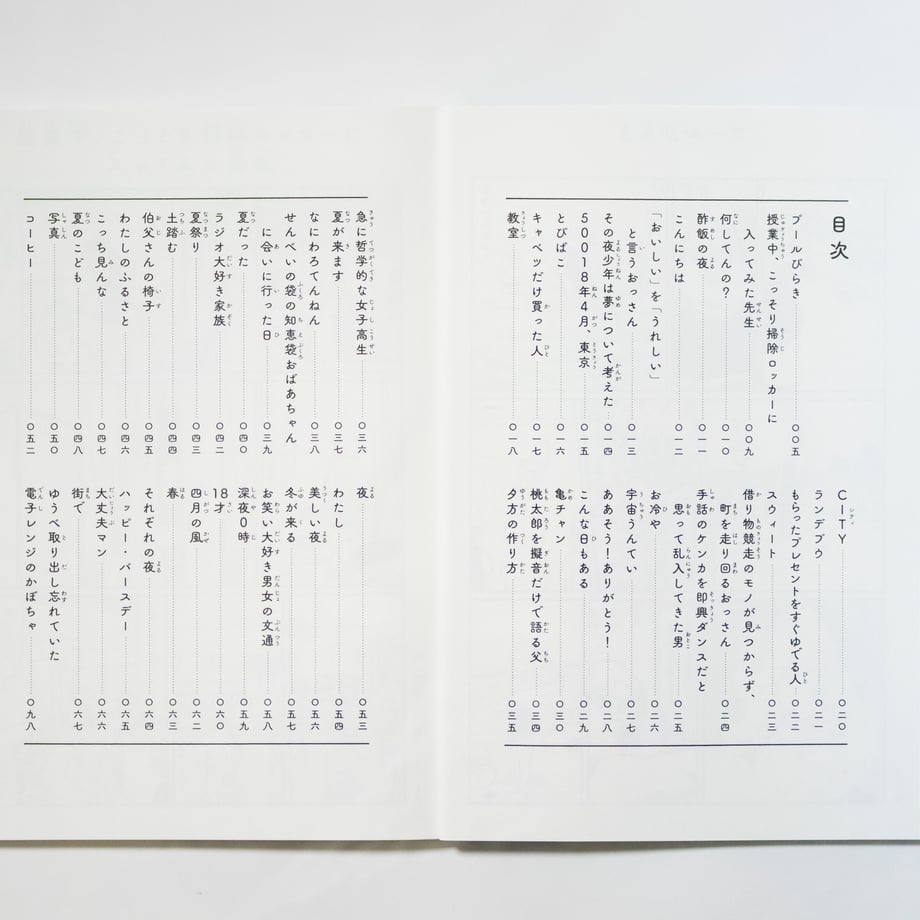 目次
プールびらき 〇〇五
授業中、こっそり掃除ロッカーに
入ってみた先生 〇〇九
何してんの? 〇一〇
酢飯の夜 〇一一
こんにちは 〇一二
「おいしい」を「うれしい」
と言うおっさん 〇一三
その夜少年は夢について考えた 〇一四
50018年4月、東京 〇一五
とびばこ 〇一六
キャベツだけ買った人 〇一七
教室 〇一八
CITY 〇二〇
ランデブウ 〇二一
もらったプレゼントをすぐゆでる人 〇二二
スウィート 〇二三
借り物競走のモノが見つからず、
町を走り回るおっさん 〇二四
手話のケンカを即興ダンスだと
思って乱入してきた男 〇二五
お冷や 〇二六
宇宙うんてい 〇二七
ああそう!ありがとう! 〇二八
こんな日もある 〇二九
亀チャン 〇三〇
桃太郎を擬音だけで語る父 〇三四
夕方の作り方 〇三五
急に哲学的な女子高生 〇三六
夏が来ます 〇三七
なにわろてんねん 〇三八
せんべいの袋の知恵袋おばあちゃん
に会いに行った日 〇三九
夏だった 〇四〇
ラジオ大好き家族 〇四二
夏祭り 〇四三
土踏む 〇四四
伯父さんの椅子 〇四五
わたしのふるさと 〇四六
こっち見んな 〇四七
夏のこども 〇四八
写真 〇五〇
コーヒー 〇五二
夜 〇五三
わたし 〇五四
美しい夜 〇五六
冬が来る 〇五七
お笑い大好き男女の文通 〇五八
深夜0時 〇五九
18才 〇六〇
四月の風 〇六二
春 〇六三
それぞれの夜 〇六四
ハッピー・バースデー 〇六五
大丈夫マン 〇六六
街で 〇六七
ゆうべ取り出し忘れていた
電子レンジのかぼちゃ 〇九八